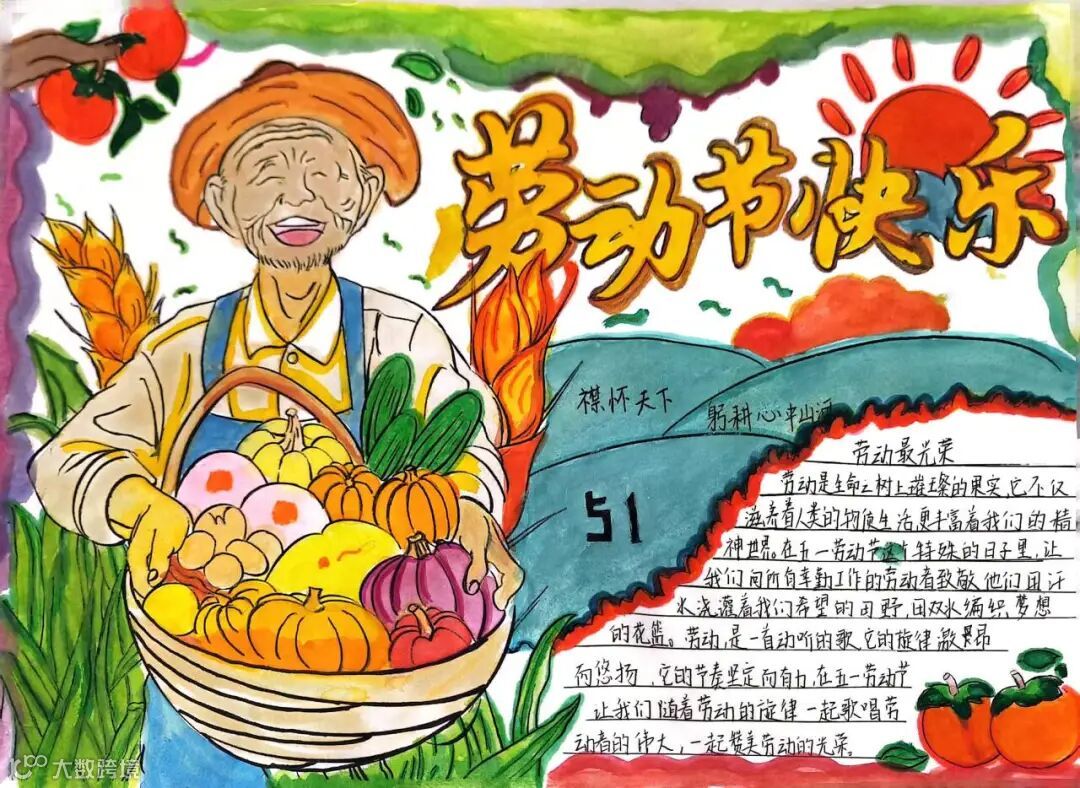 劳动节快乐
襟怀天下
躬耕心中山河
51
劳动最光荣
劳动是生命之树上璀璨的果实,它不仅
滋养着人类的物质生活更丰富着我们的精
神世界。在五一劳动节这个特殊的日子里,让
我们向所有辛勤工作的劳动者致敬,他们用汗
水浇灌着我们希望的田野,用双水编织梦想
的花篮。劳动,是一首动听的歌,它的旋律激昂
而悠扬,它的节奏坚定而有力,在五一劳动节
让我们随着劳动的旋律一起歌唱劳
动者的伟大,一起赞美劳动的光荣。
大数跨境